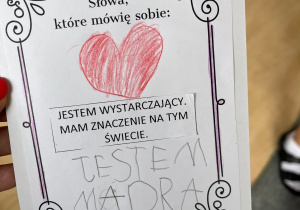 Słowa,
które mówię sobie:
JESTEM WYSTARCZAJĄCY.
MAM ZNACZENIE NA TYM
ŚWIECIE.
JESTEM
MĄDRA